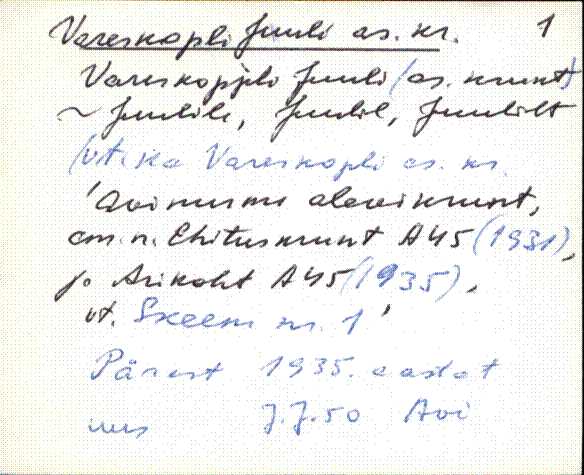 Vareskopli Juuli as. kr. 1
Vareskopli Juuli (as. krunt)
~ Juulile, Juulil, Juulilt
(vt. ka Vareskopli as. kr.
'Avinurme alevikrunt,
am. n. Ehituskrunt A45 (1931),
ja Arikoht A45 (1935),
vt. Skeem nr. 1'
Pärast 1935. aastat
J.J. 50 Avi